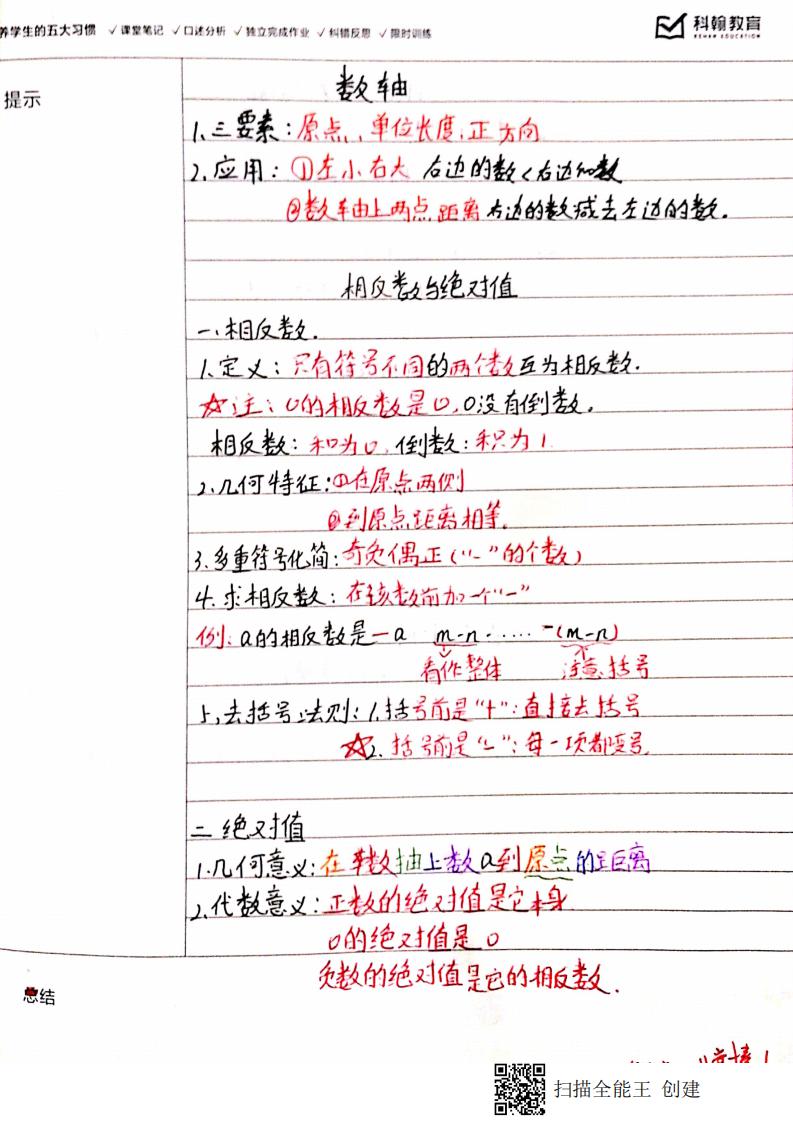 养学生的五大习惯 ✓课堂笔记 ✓口述分析 ✓独立完成作业 ✓纠错反思 ✓限时训练
科翰教育
KEHAN EDUCATION
提示
数轴
1.三要素：原点、单位长度、正方向
2.应用：①左小右大 右边的数<右边的数
②数轴上两点距离 右边的数减去左边的数.
相反数与绝对值
一、相反数.
1.定义：只有符号不同的两个数互为相反数.
☆注：0的相反数是0，0没有倒数。
相反数：和为0，倒数：积为1.
2.几何特征：①在原点两侧
②到原点距离相等.
3.多重符号化简：奇负偶正（“-”的个数）
4.求相反数：在该数前加一个“-”
例：a的相反数是-a m-n ····· -(m-n)
看作整体 注意括号
5.去括号法则：1.括号前是“+”：直接去括号
☆2.括号前是“-”：每一项都变号.
二 绝对值
1.几何意义：在数抽上数a到原点的距离
2.代数意义：正数的绝对值是它本身
0的绝对值是0
负数的绝对值是它的相反数.
总结
扫描全能王 创建